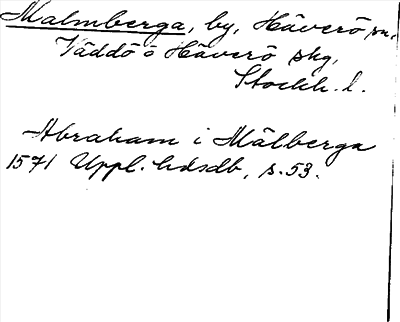 Malmberga, by, Häverö sn,
Väddö o Häverö skg,
Stockh. l.
Abraham i Mälberga
1571 Uppl. hdsdb, s. 53.